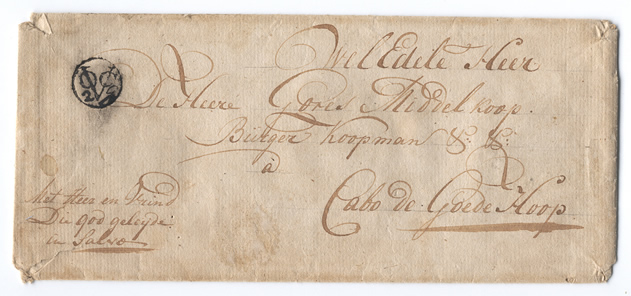 Wel Edele Heer
De Heere Goris Middelkoop.
Burger Koopman &: &:
à
Cabo de Goede Hoop
Met Heer en Vrind
Die god geleyde
in Salvo